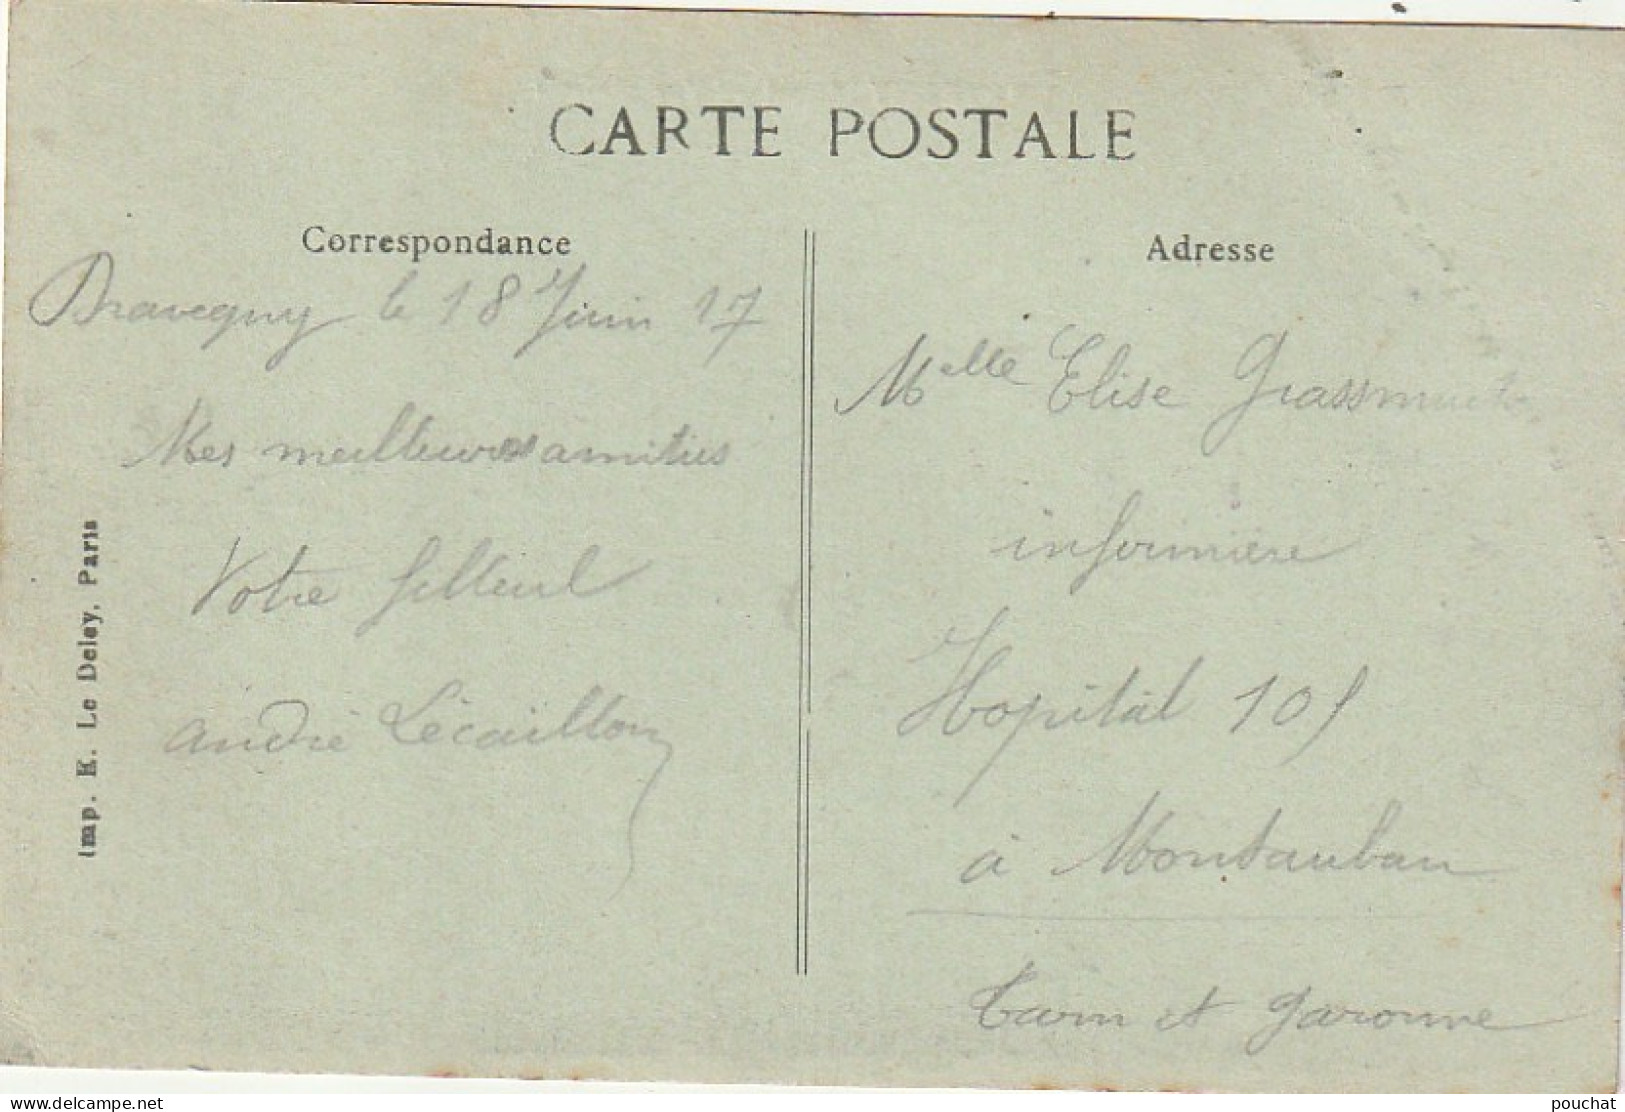 CARTE POSTALE
Correspondance
le 18 Juin 17
Mes meilleures amitiés
Votre filleul
André Lécaillon
Imp. E. Le Deley, Paris
Adresse
Melle Elise
infirmière
Hopital 105
à Montauban
Tarn et Garonne
pouchat